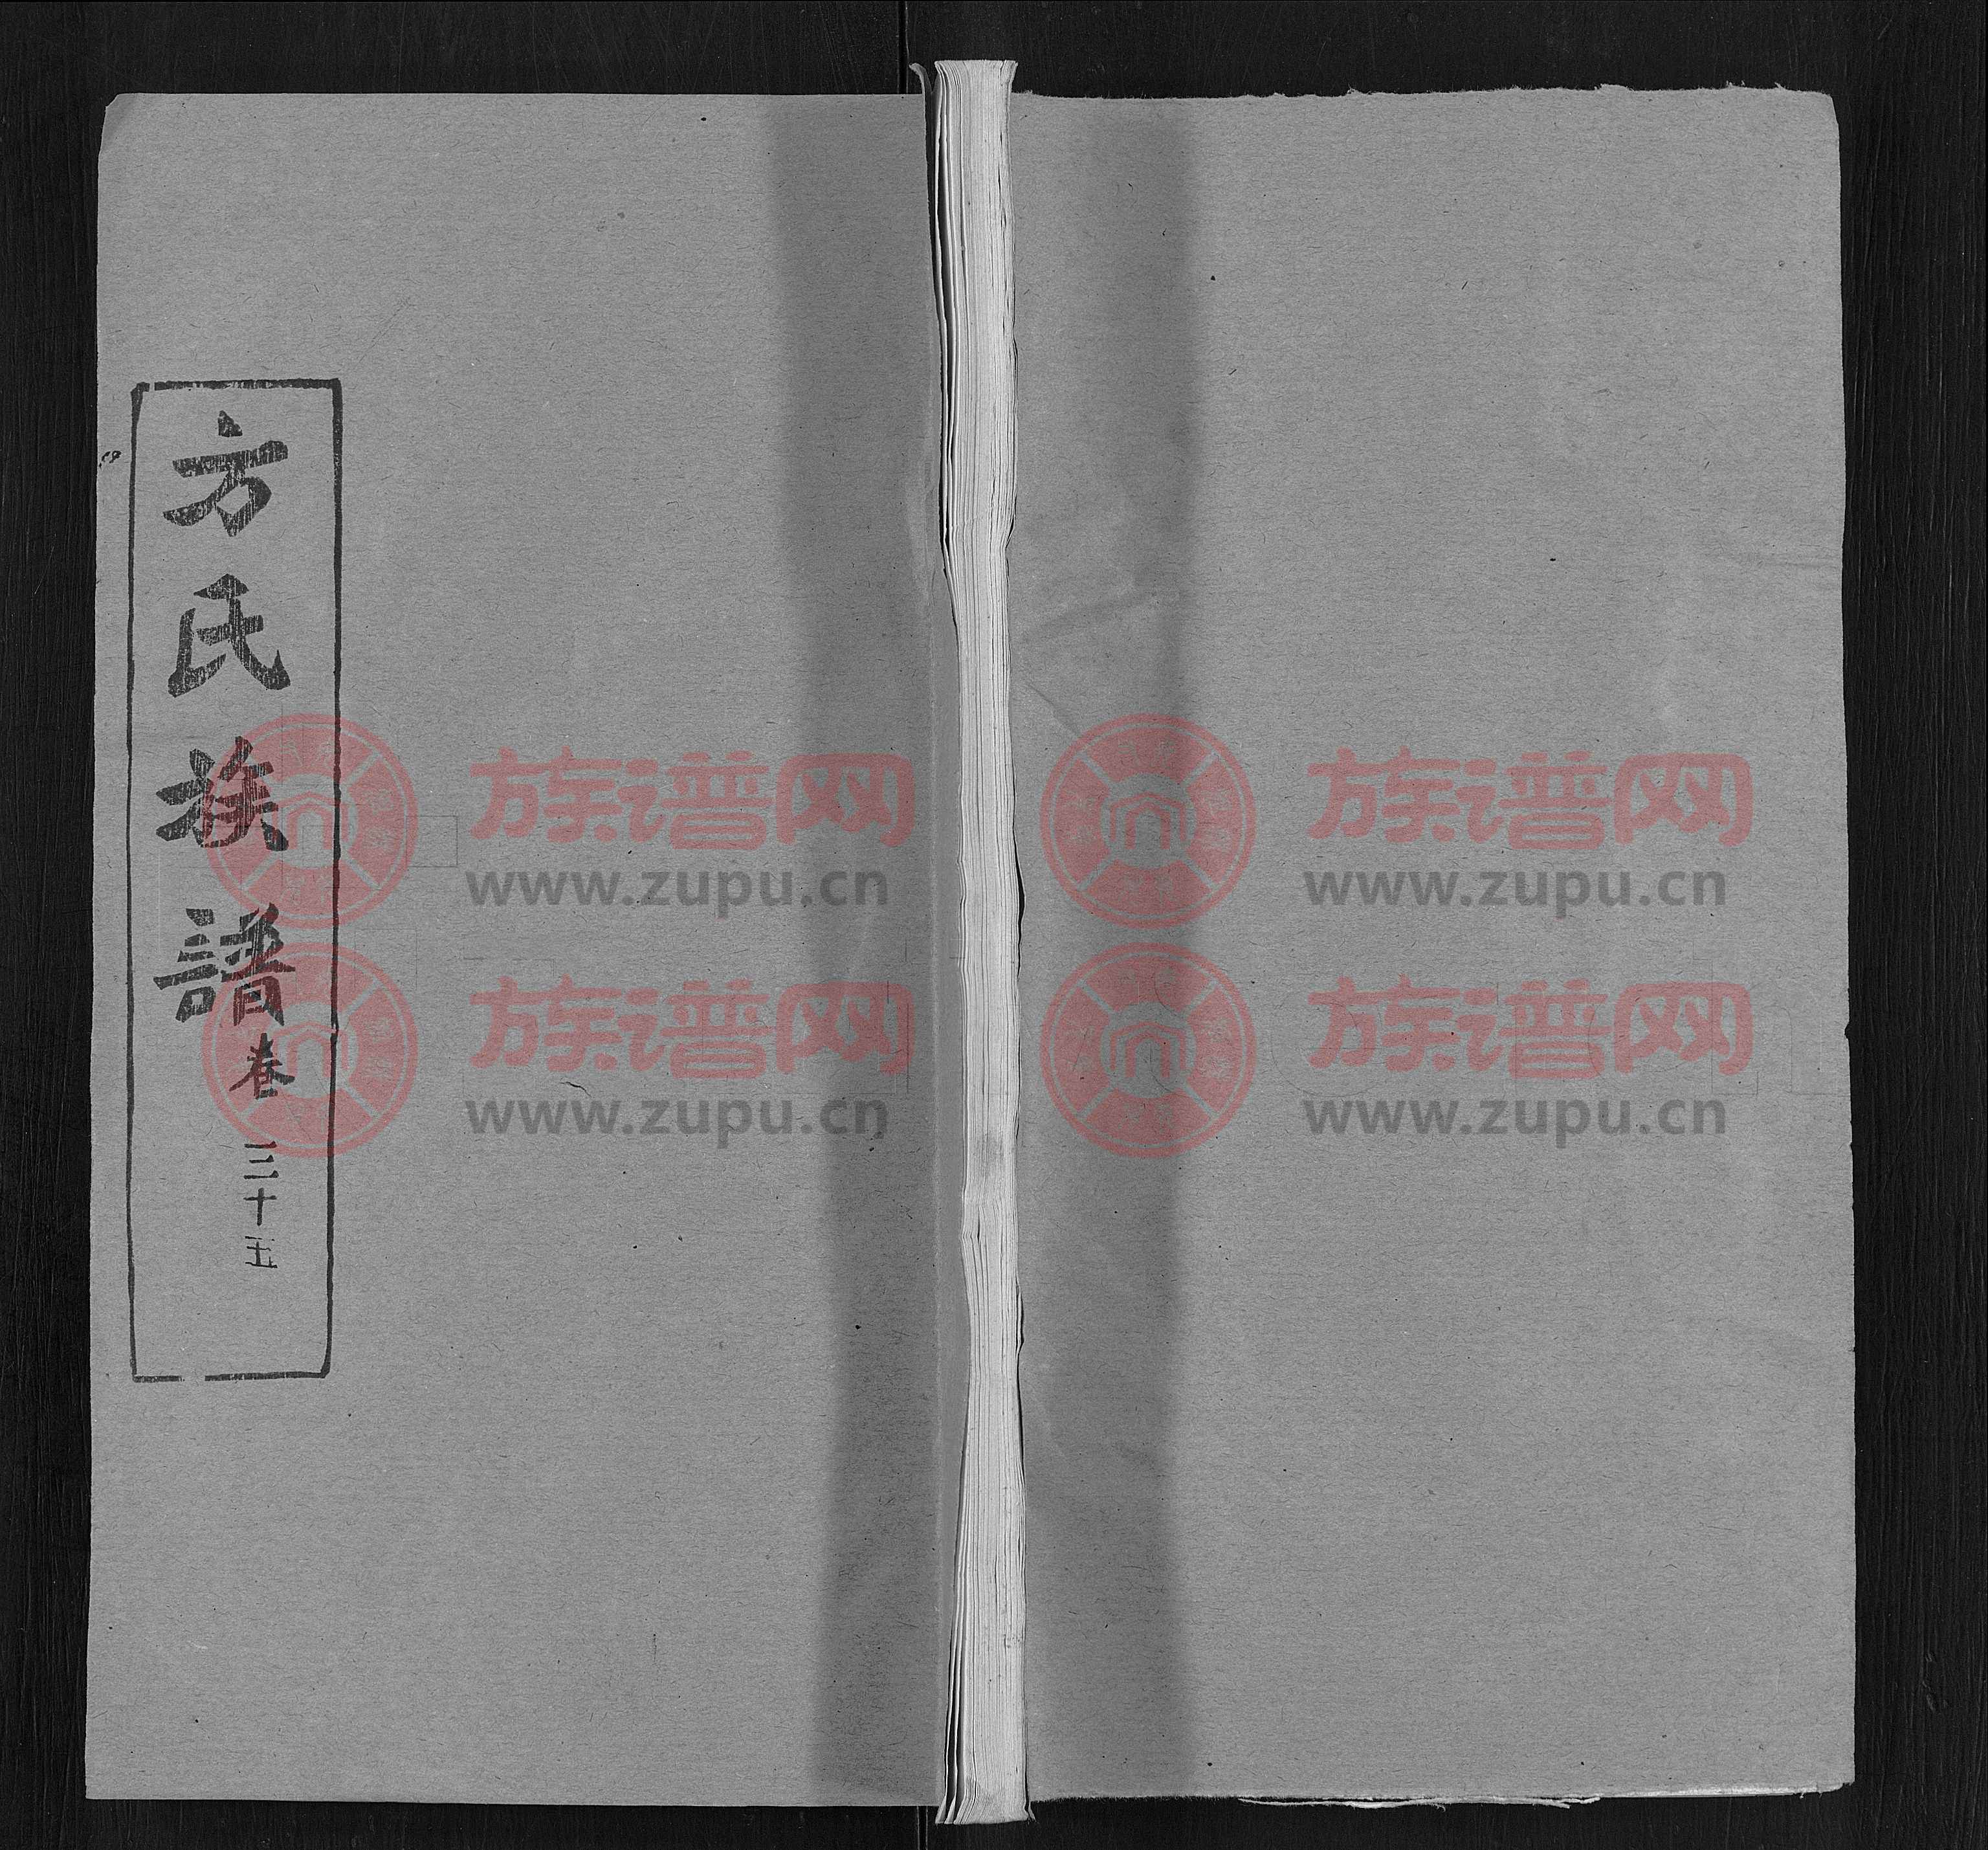 方氏族譜卷三十五
族谱网
www.zupu.cn
族谱网
www.zupu.cn
族谱网
www.zupu.cn
族谱网
www.zupu.cn